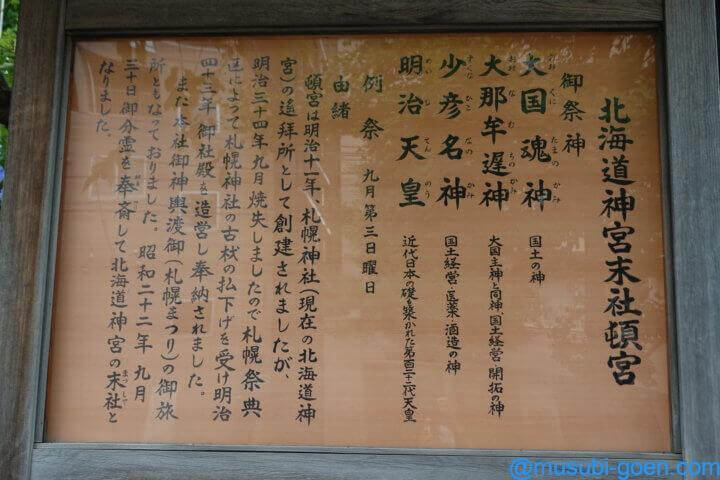 北海道神宮末社頓宮
御祭神
大国魂神 国土の神
おお くに たまの かみ
大那牟遅神 大国主神と同神、国土経営 開拓の神
おお な む ちの かみ
少彦名神 国土経営・医薬 酒造の神
すくな ひこ なの かみ
明治天皇 近代日本の礎を築かれた第百二十二代天皇
めい じ てん のう
例祭 九月第三日曜日
由緒
頓宮は明治十一年、札幌神社(現在の北海道神
宮)の遥拝所として創建されましたが、
明治三十四年九月焼失しましたので札幌祭典
区によって札幌神社の古材の払下げを受け明治
四十三年御社殿を造営し奉納されました。
また本社御神輿渡御(札幌まつり)の御旅
所ともなっておりました。昭和二十二年九月
三十日御分霊を奉斎して北海道神宮の末社と
まつしゃ
なりました。
@musubi-goen.com